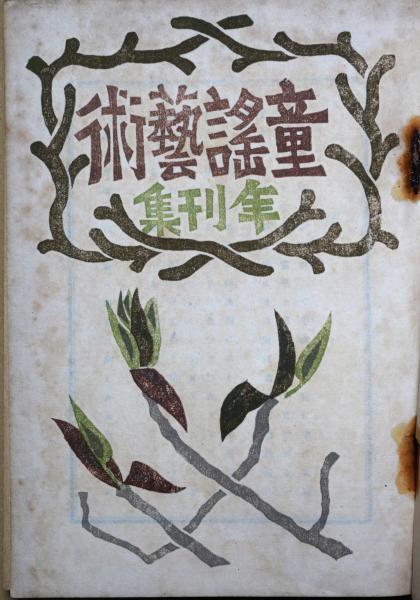 童謠藝術
年刊集